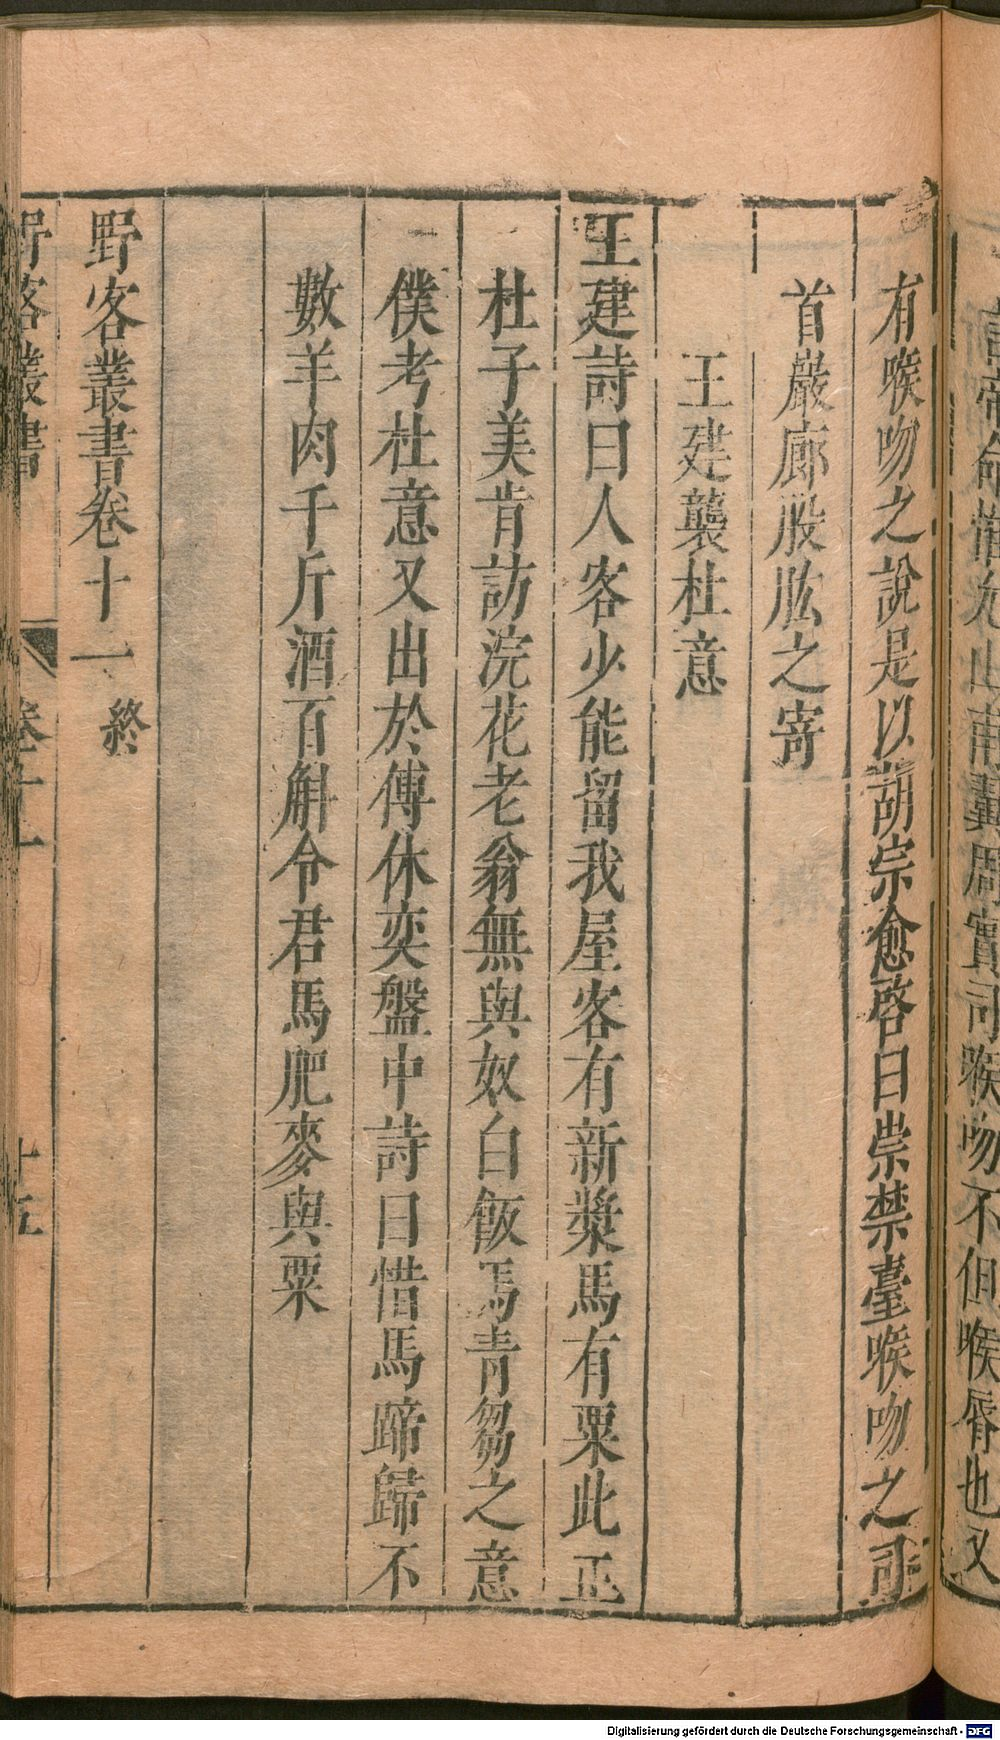 命慎允山甫翼周實司喉吻不但喉脣也又
有喉吻之說是以胡宗愈啓曰崇禁臺喉吻之司
首嚴廊股肱之寄
王建襲杜意
王建詩曰人客少能留我屋客有新漿馬有粟此正
杜子美肯訪浣花老翁無與奴白飯馬青芻之意
僕考杜意又出於傅休奕盤中詩曰惜馬蹄歸不
數羊肉千斤酒百斛令君馬肥麥與粟
野客叢書卷十一 終
野客叢書 卷十一 十五
Digitalisierung gefördert durch die Deutsche Forschungsgemeinschaft - DFG